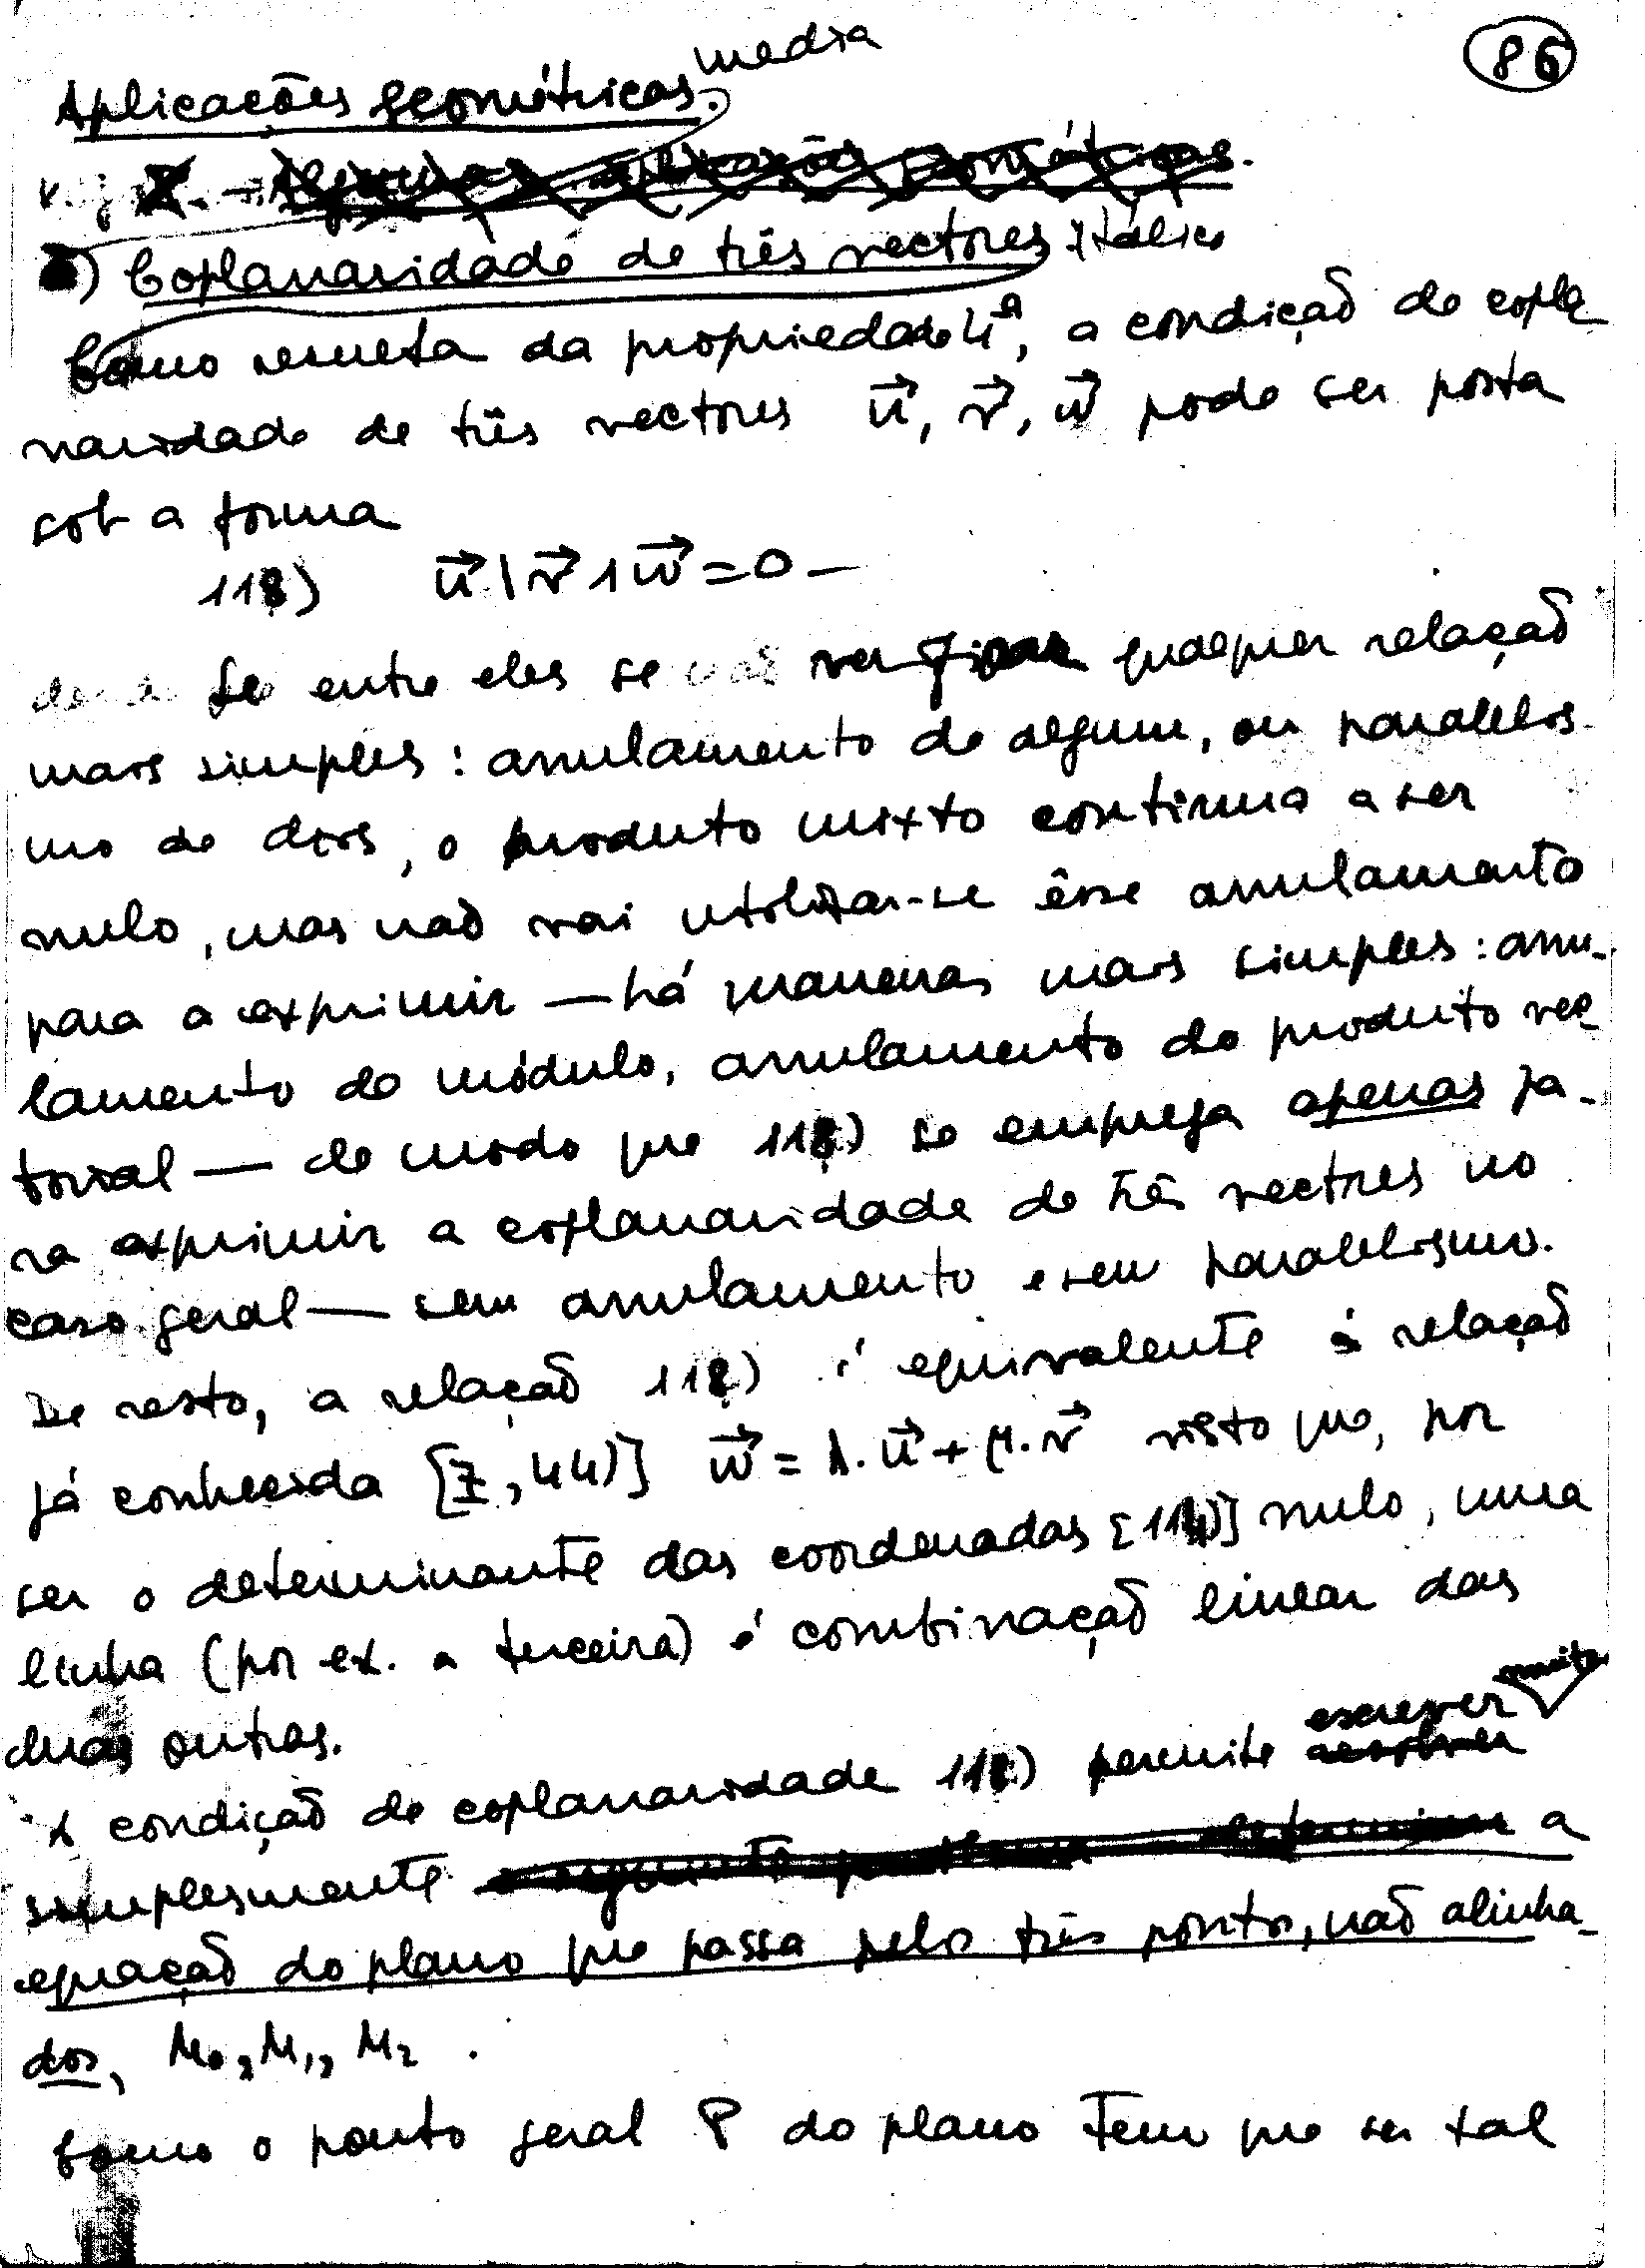 86
Aplicações geométricas. media
Coplanaridade de três vectores itálico
Como resulta da propriedade 4ª, a condição de copla-
naridade de três vectores u⃗, v⃗, w⃗ pode ser posta
sob a forma
118) u⃗ | v⃗ ∧ w⃗ = 0 —
Se entre eles se verificar qualquer relação
mais simples: anulamento de algum, ou paralelis-
mo de dois, o produto mixto continua a ser
nulo, mas não vai utilizar-se êsse anulamento
para a exprimir — há maneiras mais simples: anu-
lamento do módulo, anulamento do produto vec-
torial — de modo que 118) se emprega apenas pa-
ra exprimir a coplanaridade de três vectores no
caso geral — sem anulamento e sem paralelismo.
De resto, a relação 118) é equivalente à relação
já conhecida [I, 44)] w⃗ = λ. u⃗ + μ. v⃗ visto que, por
ser o determinante das coordenadas [114)] nulo, uma
linha (por ex. a terceira) é combinação linear das
duas outras.
A condição de coplanaridade 118) permite escrever muito
simplesmente a
equação do plano que passa pelos três pontos, não alinha-
dos, M₀, M₁, M₂.
Como o ponto geral P do plano tem que ser tal